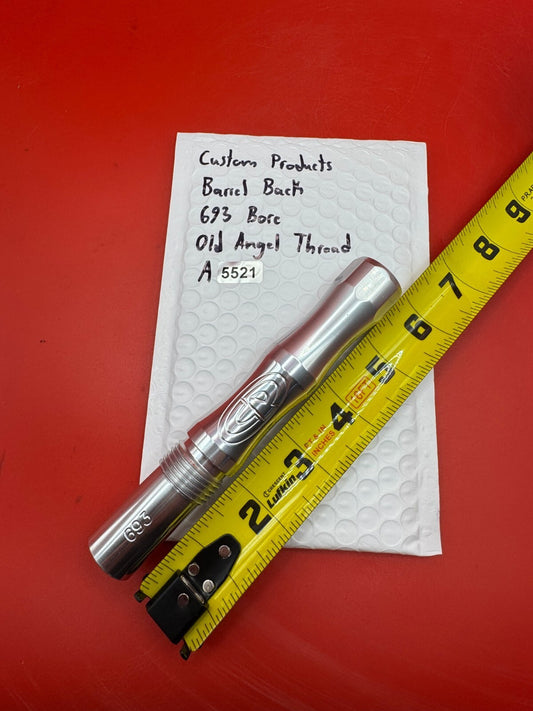 Custom Products
Barrel Back
693 Bore
Old Angel Thread
A 5521
693
2 3 4 5 6 7 8 9
Lufkin
PT. & IN.
INCHES